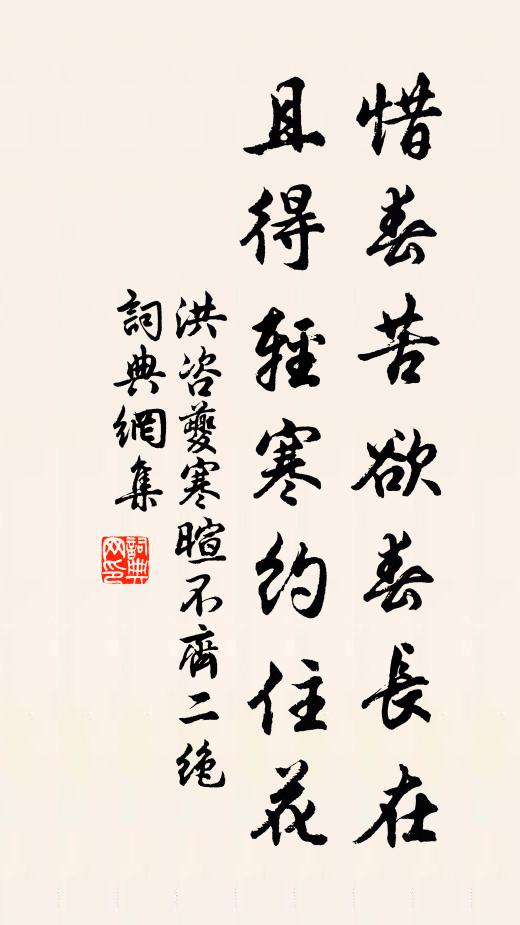 惜春苦欲春長在
且得輕寒約住花
洪咨夔寒暄不齊二絶
詞典網集
詞典网印